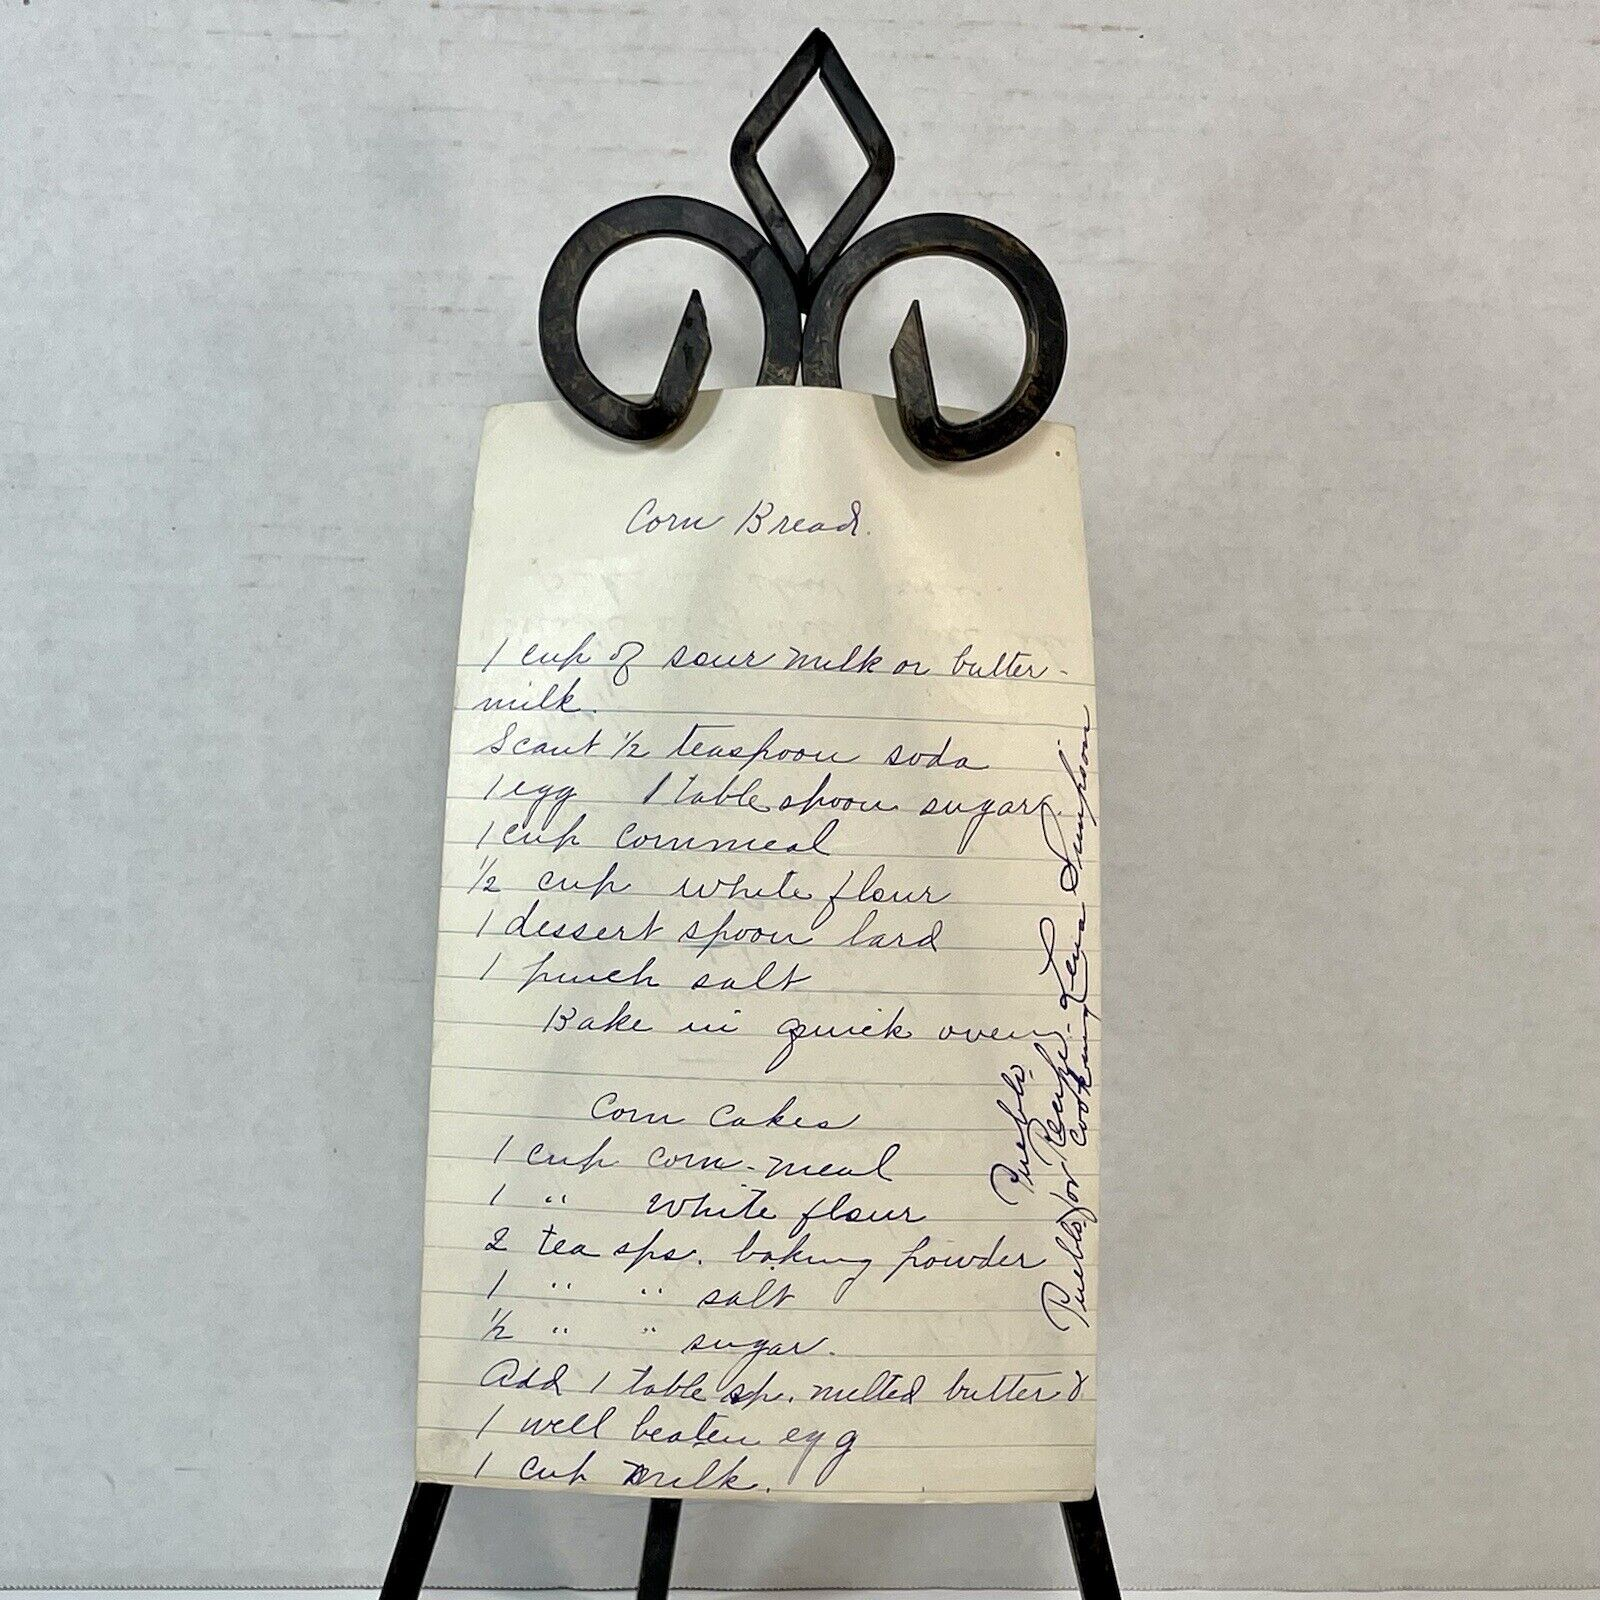 Corn Bread.
1 cup of sour milk or butter-
milk.
Scant 1/2 teaspoon soda
1 egg 1 table spoon sugar.
1 cup cornmeal
1/2 cup white flour
1 dessert spoon lard
1 pinch salt
Bake in quick oven
Corn Cakes
1 cup corn-meal
1 " white flour
2 tea sps. baking powder
1 " " salt
1/2 " " sugar.
Add 1 table sp. melted butter &
1 well beaten egg
1 cup milk.
Pueblo.
Recipe. Lena Simpson
Pueblo for cooking